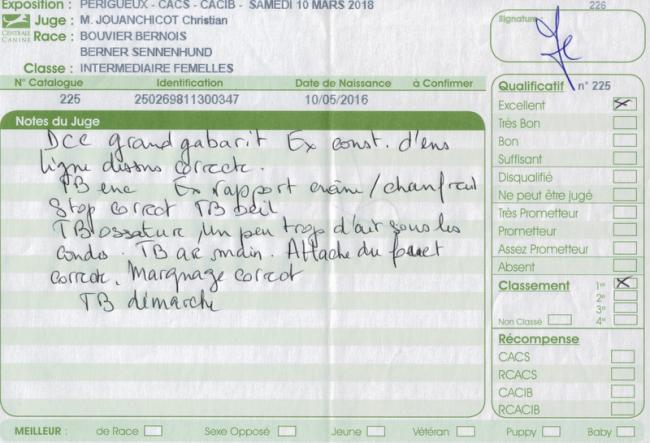 Exposition : PERIGUEUX - CACS - CACIB - SAMEDI 10 MARS 2018
226
Juge : M. JOUANCHICOT Christian
Signature
CENTRALE CANINE
Race : BOUVIER BERNOIS
BERNER SENNENHUND
Classe : INTERMEDIAIRE FEMELLES
N° Catalogue Identification Date de Naissance à Confirmer
225 250269811300347 10/05/2016
Notes du Juge
DCC grand gabarit Ex const. d'ens
ligne dissus correcte.
TB enc Ex rapport crâne/chanfrein
Stop correct TB œil
TB ossature, un peu trop d'air sous les
coudes. TB ar main. Attache du fouet
correcte, Marquage correct
TB démarche
Qualificatif n° 225
Excellent
Très Bon
Bon
Suffisant
Disqualifié
Ne peut être jugé
Très Prometteur
Prometteur
Assez Prometteur
Absent
Classement 1er
2e
3e
Non Classé 4e
Récompense
CACS
RCACS
CACIB
RCACIB
MEILLEUR : de Race Sexe Opposé Jeune Vétéran Puppy Baby